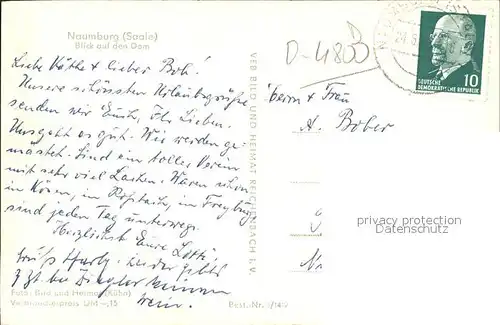 Naumburg (Saale)
Blick auf den Dom
Liebe Käthe & lieber Bob!
Unsere schönsten Urlaubsgrüße
senden wir Euch, Ihr Lieben.
Uns geht es gut. Wir werden ge-
mästet. Sind ein tolles Verein
mit sehr viel Lachen. Waren schon
in Kösen, in Roßbach, in Freyburg
sind jeden Tag unterwegs.
Herzlichst Eure Lotti
Foto: Bild und Heimat (Kühn)
Verbraucherpreis DM -,15
Best.-Nr. 1/149
VEB BILD UND HEIMAT REICHENBACH I. V.
D-4800
10
DEUTSCHE
DEMOKRATISCHE REPUBLIK
Herrn & Frau
A. Bober
privacy protection
Datenschutz